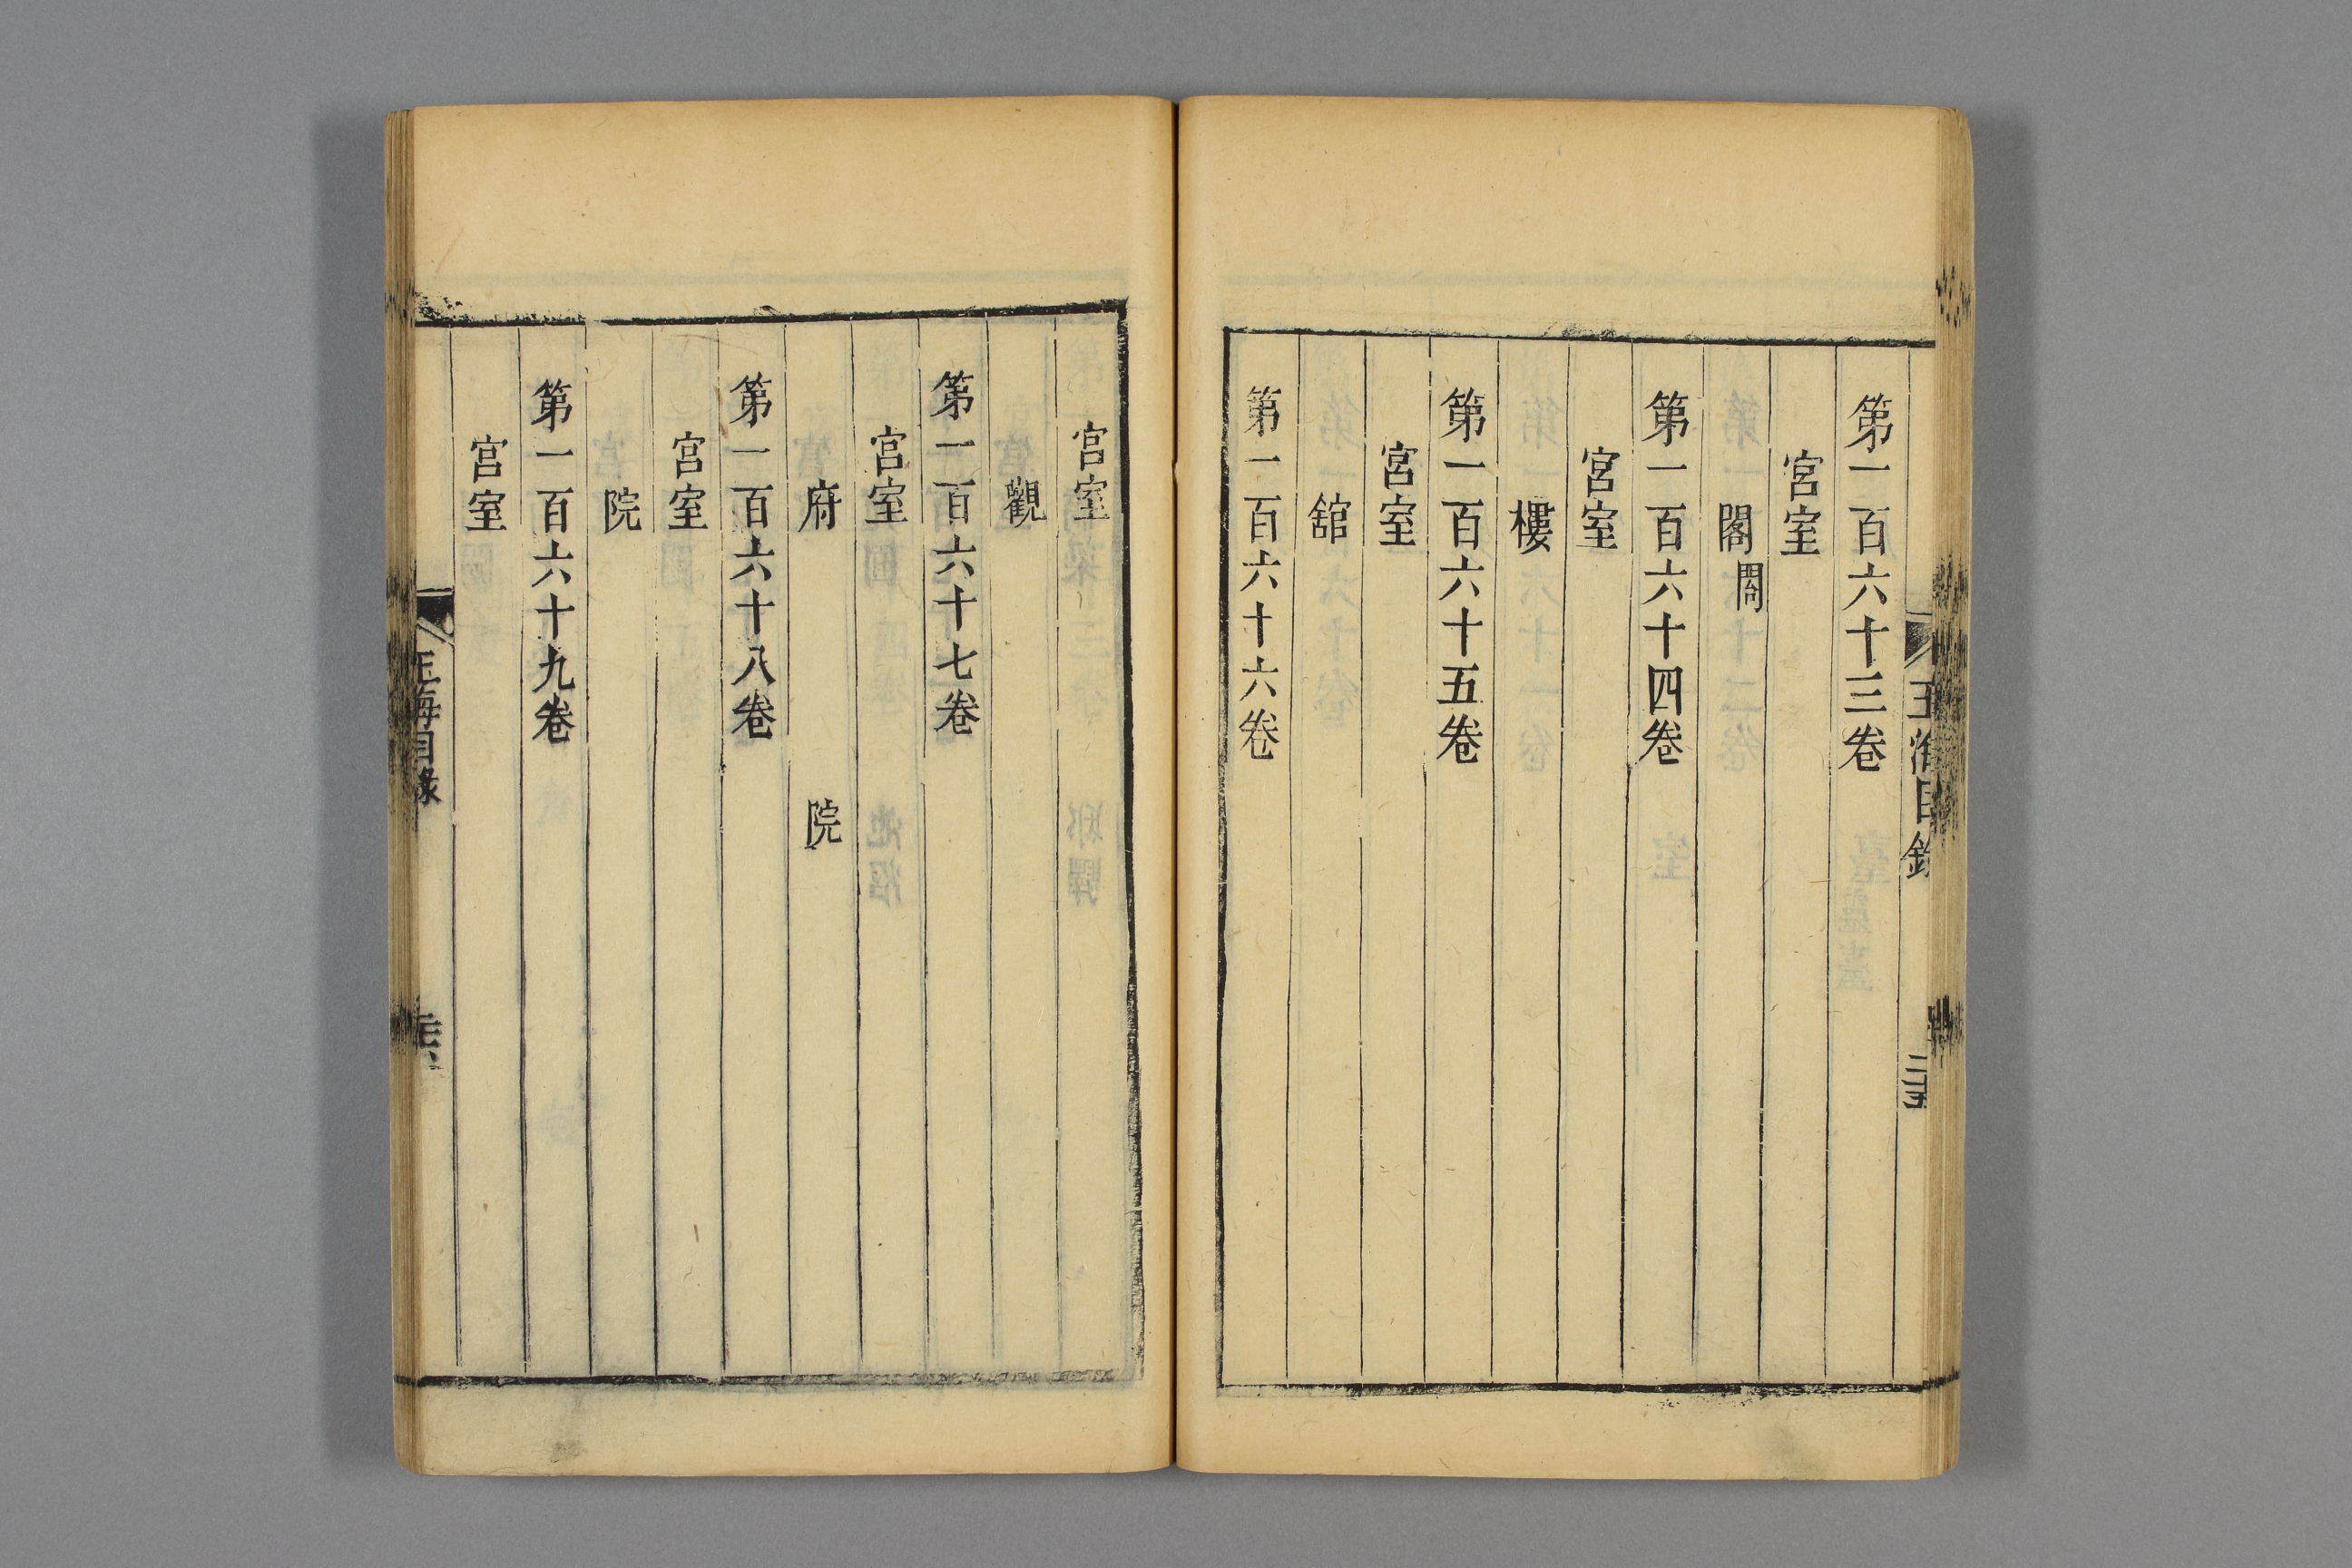 第一百六十三卷
宮室
閣閤
第一百六十四卷
宮室
樓
第一百六十五卷
宮室
舘
第一百六十六卷
宮室
觀
第一百六十七卷
宮室
府 院
第一百六十八卷
宮室
院
第一百六十九卷
宮室
玉海目錄